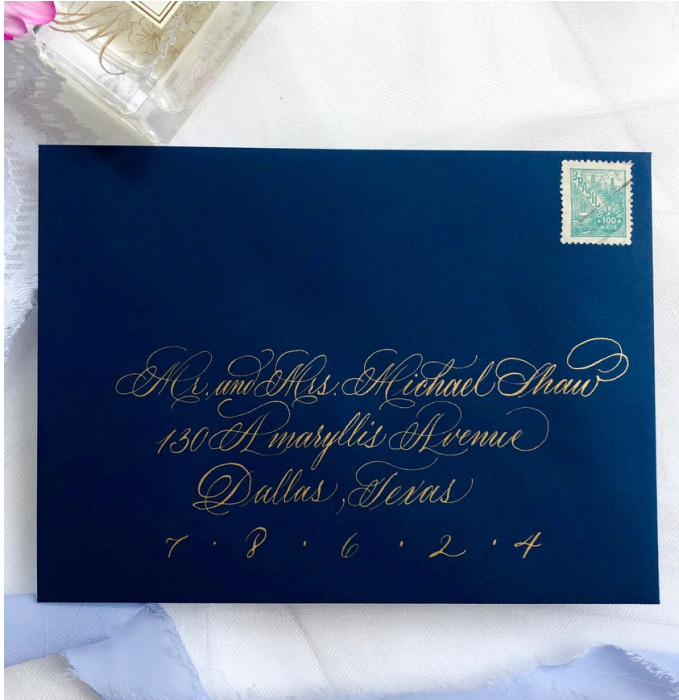 BRASIL
CORREIO
100
REIS
Mr. and Mrs. Michael Shaw
130 Amaryllis Avenue
Dallas, Texas
7 · 8 · 6 · 2 · 4